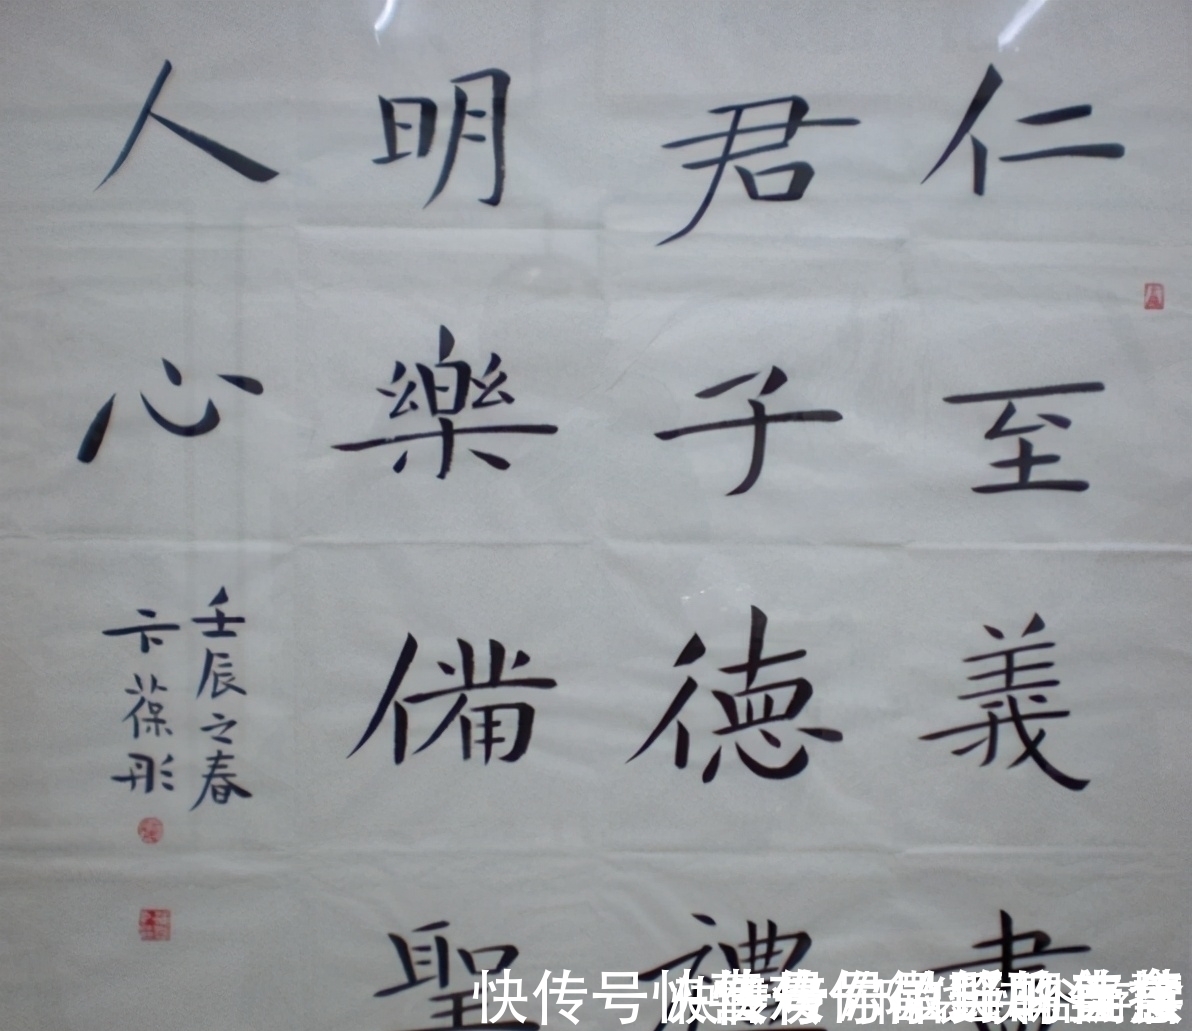 仁至義
君子德禮
明樂備聖
人心
壬辰之春
卞葆彤
快传号